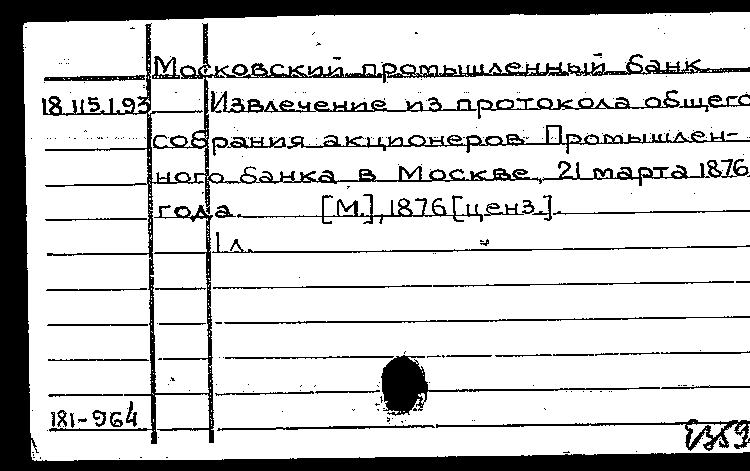 Московский промышленный банк
18.115.1.93 Извлечение из протокола общего
собрания акционеров Промышлен-
ного банка в Москве, 21 марта 1876
года. [М.], 1876 [ценз.].
1 л.
181-964